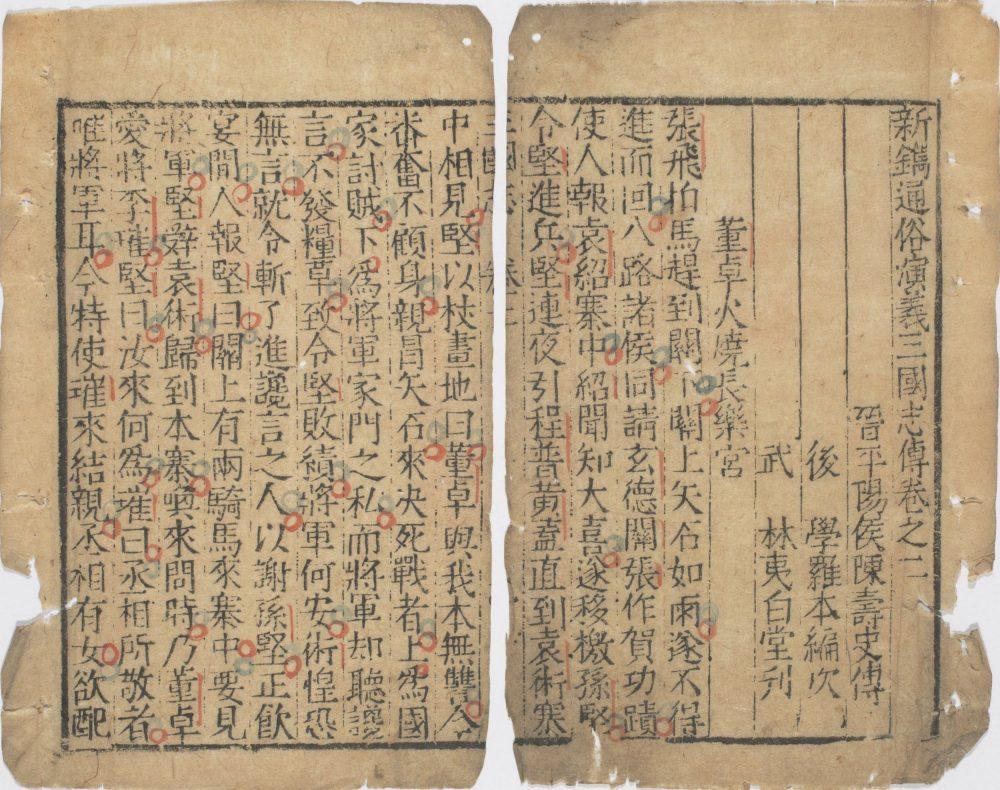 新鐫通俗演義三國志傳卷之二
晉平陽侯陳壽史傳
後學羅本編次
武林夷白堂刋
董卓火燒長樂宮
張飛拍馬趕到關下關上矢石如雨遂不得
進而回八路諸侯同請玄德關張作賀功蹟
使人報袁紹寨中紹聞知大喜遂移檄孫堅
令堅進兵堅連夜引程普黃蓋直到袁術寨
三國志 卷二
中相見堅以杖畫地曰董卓與我本無讐今
番奮不顧身親冒矢石來决死戰者上爲國
家討賊下爲將軍家門之私而將軍却聽讒
言不發糧草致令堅敗績將軍何安術惶恐
無言就令斬了進讒言之人以謝孫堅正飲
宴間人報堅曰關上有兩騎馬來寨中要見
將軍堅辞袁術歸到本寨喚來問時乃董卓
愛將李㩁堅曰汝來何爲㩁曰丞相所敬者
唯將軍耳今特使㩁來結親丞相有女欲配